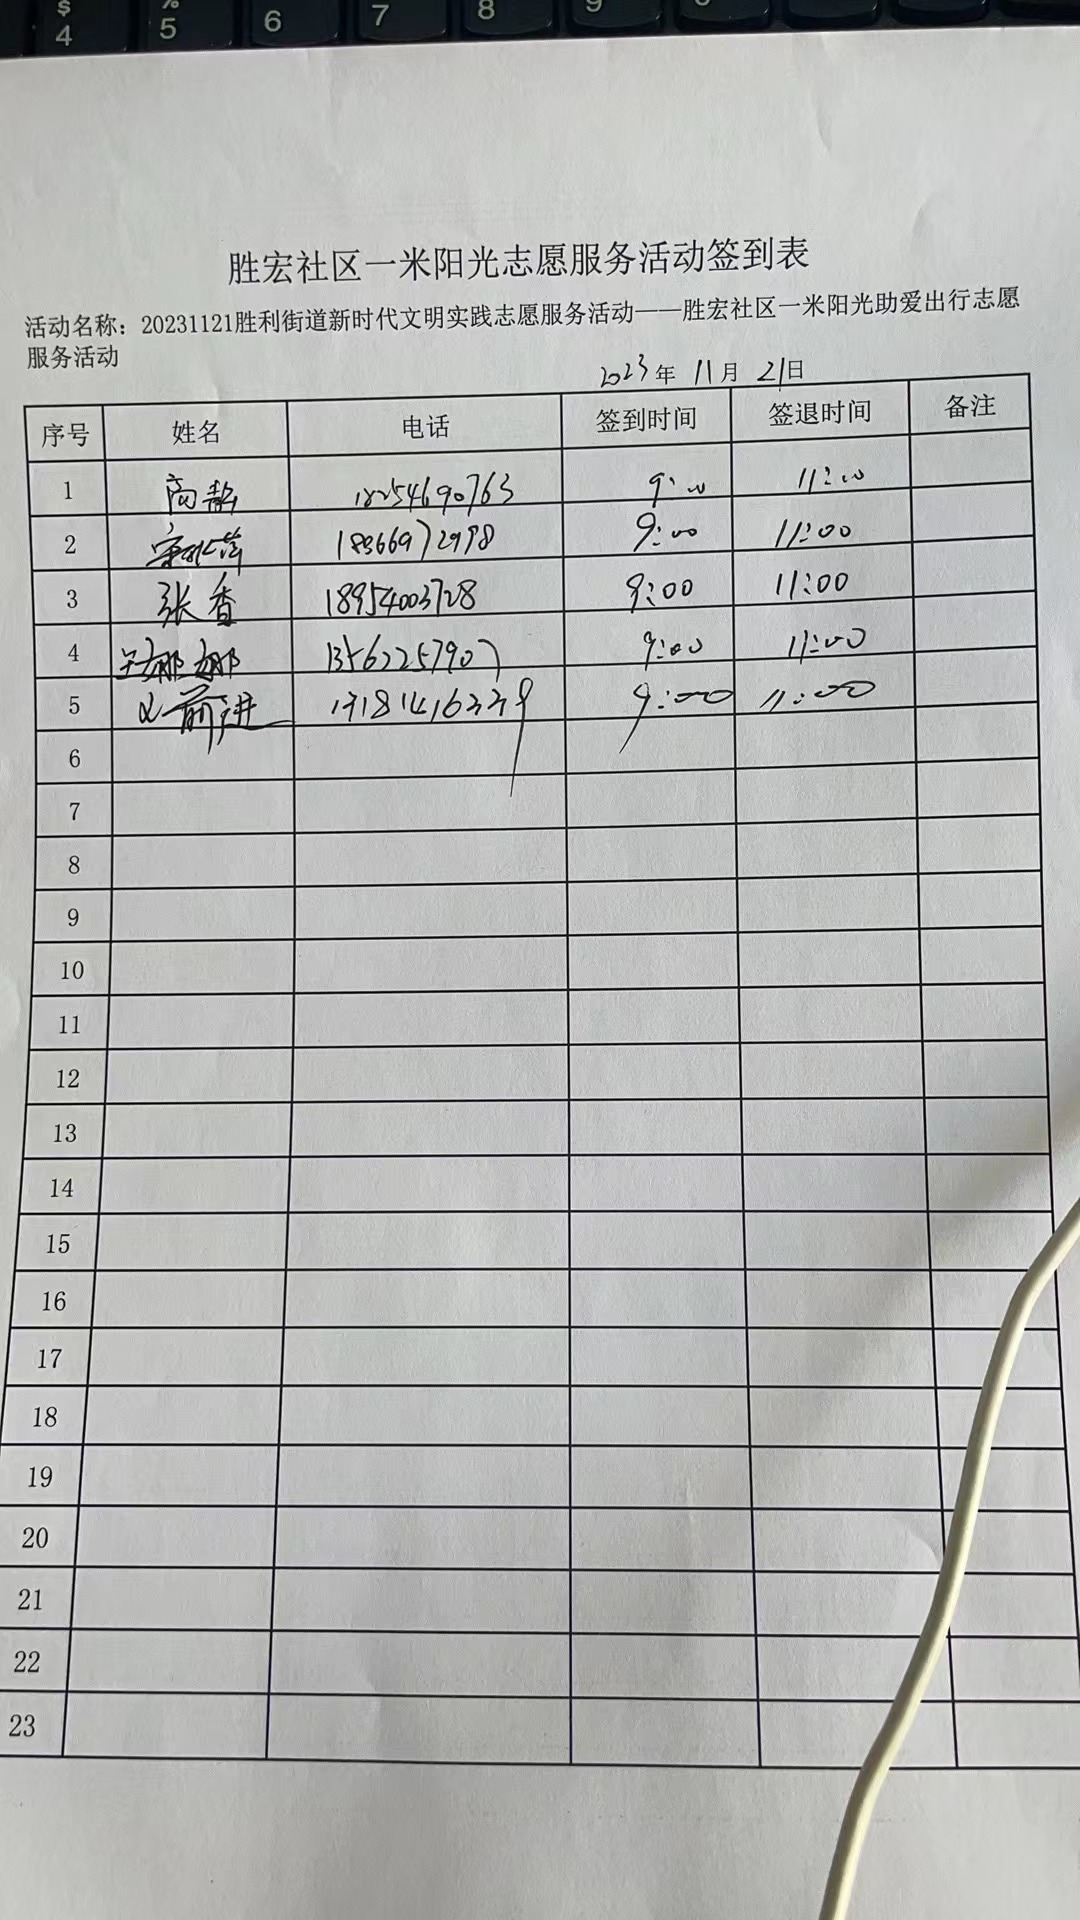 $ % 
4 5 6 7 8 9
胜宏社区一米阳光志愿服务活动签到表
活动名称：20231121胜利街道新时代文明实践志愿服务活动——胜宏社区一米阳光助爱出行志愿
服务活动
2023年 11月 21日
序号 姓名 电话 签到时间 签退时间 备注
1 18254690763 9:00 11:00
2 18366972998 9:00 11:00
3 张香 18954003728 9:00 11:00
4 娜娜 13562257907 9:00 11:00
5 前进 9:00 11:00
6
7
8
9
10
11
12
13
14
15
16
17
18
19
20
21
22
23